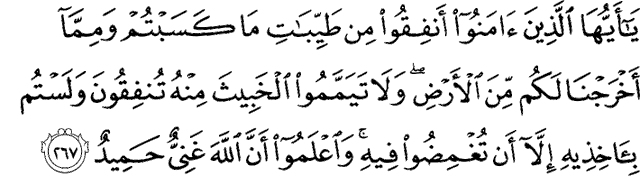 يَـٰٓأَيُّهَا ٱلَّذِينَ ءَامَنُوٓا۟ أَنفِقُوا۟ مِن طَيِّبَـٰتِ مَا كَسَبْتُمْ وَمِمَّآ
أَخْرَجْنَا لَكُم مِّنَ ٱلْأَرْضِ ۖ وَلَا تَيَمَّمُوا۟ ٱلْخَبِيثَ مِنْهُ تُنفِقُونَ وَلَسْتُم
بِـَٔاخِذِيهِ إِلَّآ أَن تُغْمِضُوا۟ فِيهِ ۚ وَٱعْلَمُوٓا۟ أَنَّ ٱللَّهَ غَنِىٌّ حَمِيدٌ ٢٦٧